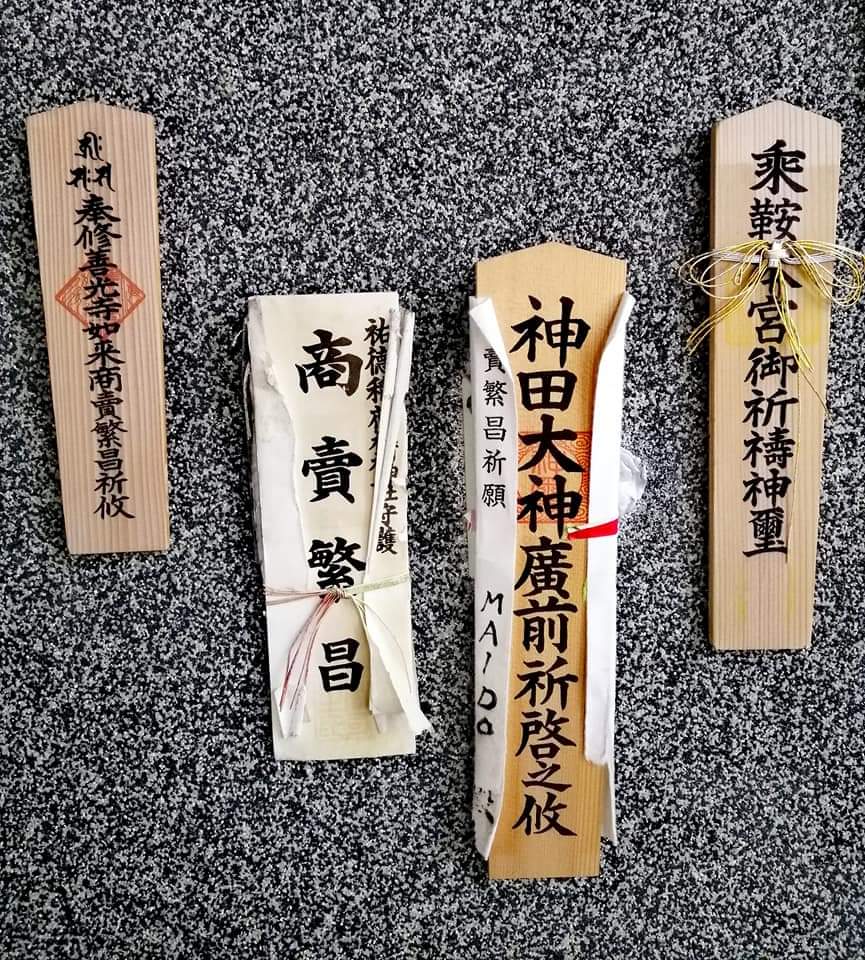 奉修善光寺如来商賣繁昌祈攸
祐徳稲荷神社守護
商賣繁昌
神田大神廣前祈啓之攸
賣繁昌祈願
MAIDO
乗鞍本宮御祈禱神璽